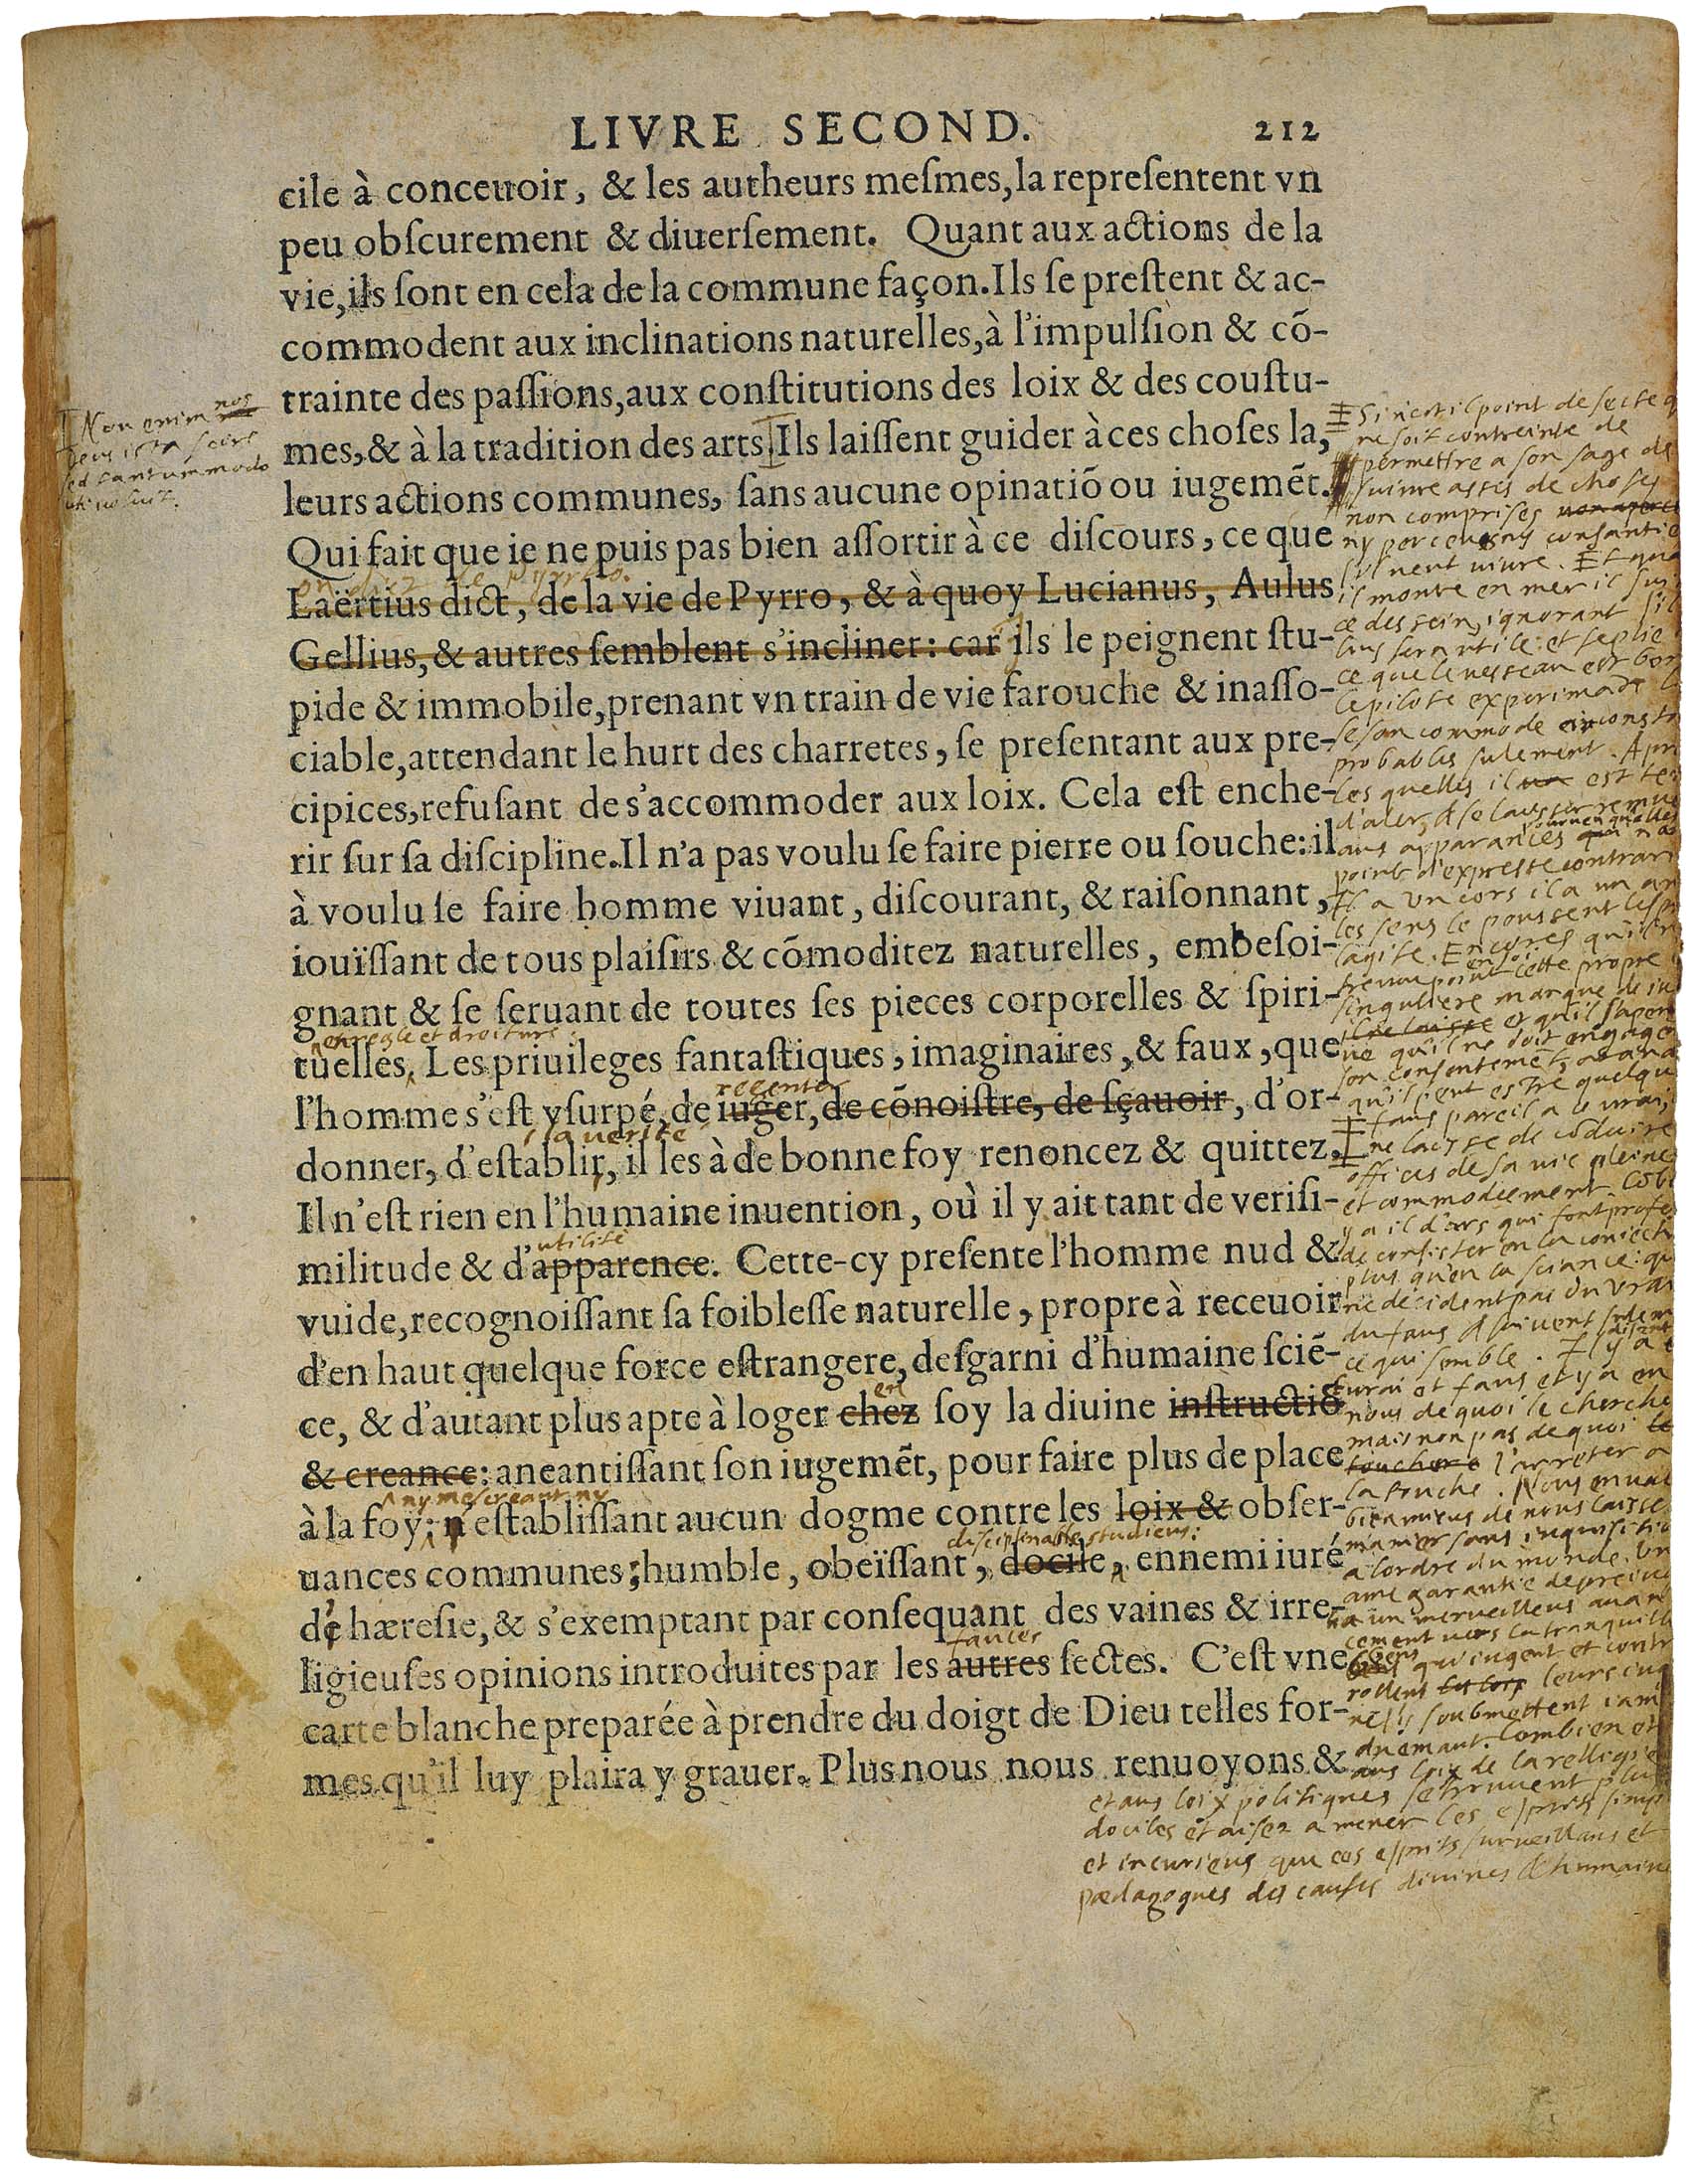 LIVRE SECOND. 212
cile à conceuoir, & les autheurs meſmes, la repreſentent vn
peu obſcurement & diuerſement. Quant aux actions de la
vie, ils ſont en cela de la commune façon. Ils ſe preſtent & ac-
commodent aux inclinations naturelles, à l'impulſion & cõ-
trainte des paſſions, aux conſtitutions des loix & des couſtu-
mes, & à la tradition des arts. Ils laiſſent guider à ces choſes la,
leurs actions communes, ſans aucune opinatiõ ou iugemẽt.
Qui fait que ie ne puis pas bien aſſortir à ce diſcours, ce que
on dict de Pyrrho.
Laërtius dict, de la vie de Pyrro, & à quoy Lucianus, Aulus
Gellius, & autres ſemblent s'incliner: car ils le peignent ſtu-
pide & immobile, prenant vn train de vie farouche & inaſſo-
ciable, attendant le hurt des charretes, ſe preſentant aux pre-
cipices, refuſant de s'accommoder aux loix. Cela eſt enche-
rir ſur ſa diſcipline. Il n'a pas voulu ſe faire pierre ou ſouche: il
à voulu ſe faire homme viuant, diſcourant, & raiſonnant,
iouïſſant de tous plaiſirs & cõmoditez naturelles, embeſoi-
gnant & ſe ſeruant de toutes ſes pieces corporelles & ſpiri-
en regle et droiture
tuelles. Les priuileges fantaſtiques, imaginaires, & faux, que
regenter
l'homme s'eſt vſurpé, de iuger, de cõnoiſtre, de ſçauoir, d'or-
la verité
donner, d'eſtablir, il les à de bonne foy renoncez & quittez.
Il n'eſt rien en l'humaine inuention, où il y ait tant de veriſi-
utilité
militude & d'apparence. Cette-cy preſente l'homme nud &
vuide, recognoiſſant ſa foibleſſe naturelle, propre à receuoir
d'en haut quelque force eſtrangere, deſgarni d'humaine ſciẽ-
en
ce, & d'autant plus apte à loger chez ſoy la diuine inſtructiõ
& creance: aneantiſſant ſon iugemẽt, pour faire plus de place
ny mescreant ny
à la foy: n'eſtabliſſant aucun dogme contre les loix & obſer-
disciplinable studieus:
uances communes; humble, obeïſſant, docile, ennemi iuré
d'hæreſie, & s'exemptant par conſequant des vaines & irre-
fauces
ligieuſes opinions introduites par les autres ſectes. C'eſt vne
carte blanche preparée à prendre du doigt de Dieu telles for-
mes qu'il luy plaira y grauer. Plus nous nous renuoyons &
Non enim nos
ista scire
sed tantummodo
Si n'est il point de secte
ne soit contreinte de
permettre a son sage de
suivre asses de choses
non comprises
ny perceues ny consanties
vivre. Et quand
il monte en mer il suit
ce dessein, ignorant s'il
luy sera utile: et se plie
ce que le vesseau est bon
le pilote experimanté la
seson commode circonsta
probables sulement. Apres
les quelles il est tenu
d'aler, & se laisser remuer
aus apparances
point d'expresse contrari
Il a un cors il a un ame
les sens le poussent l'esp
l'agite. Encores qu'il ne
treuve point en soi cette propre
singuliere marque de iu
et qu'il s'aperc
ve qu'il ne doit engager
son consentemet, atandu
qu'il peut estre quelque
faus pareil a ce vrai,
ne laisse de coduire
offices de sa vie pleine
et commodeement Cobi
y a il d'ars qui font profes
de consister en la coniectu
plus qu'en la sciance: qui
ne decident pas du vrai
du faus & suivent sulem
ce qui semble. Il y a
vrai et faus et y a en
nous de quoi le chercher
mais non pas de quoi
l'arreter a
la touche. Nous en val
bien mieus de nous laisser
manier sans inquisition
a l'ordre du monde. Un
ame garantie de preiuge
a un merveilleus avan
cement vers la tranquill
gens qui iugent et contr
rollent leurs iug
ne s'y soubmettent iam
duemant. Combien et
aus loix de la relligion
et aus loix politiques se treuvent plus
dociles et aisez a mener les esprits simp
et incurieus que ces esprits surveillans et
pædagogues des causes divines & humaine